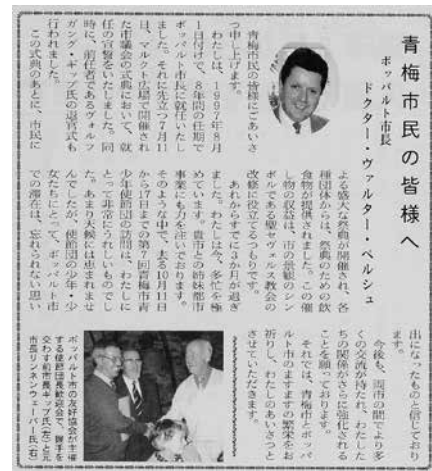 青梅市民の皆様へ
ボッパルト市長
ドクター・ヴァルター・ベルシュ
青梅市民の皆様にごあいさ
つ申し上げます。
わたしは、1997年8月
1日付けで、8年間の任期で
ボッパルト市長に就任いたし
ました。それに先立つ7月11
日、マルクト広場で開催され
た市議会の式典において、就
任の宣誓をいたしました。同
時に、前任者であるヴォルフ
ガング・ギップ氏の退官式も
行われました。
この式典のあとに、市民に
よる盛大な祭典が開催され、各
種団体からは、祭典のための飲
食物が提供されました。この催
し物の収益は、市の景観のシン
ボルである聖セヴェルス教会の
改修に役立てるつもりです。
あれからすでに3か月が過ぎ
ました。わたしは今、多忙を極
めています。貴市との姉妹都市
事業にも力を注いでおります。
そのような中で、去る10月11日
から17日までの第7回青梅市青
少年使節団の訪問は、わたしに
とって非常にうれしいものでし
た。あまり天候には恵まれませ
んでしたが、使節団の少年・少
女たちにとって、ボッパルト市
での滞在は、忘れられない思い
出になったものと信じており
ます。
今後も、両市の間でより多
くの交流が持たれ、わたした
ちの関係がさらに強化される
ことを願っております。
それでは、青梅市とボッパ
ルト市のますますの繁栄をお
祈りし、わたしのあいさつと
させていただきます。
ボッパルト市の友好協会が主催
する使節団長歓迎会で、握手を
交わす前市長ギップ氏(左)と元
市長リンネンウェーバー氏(右)